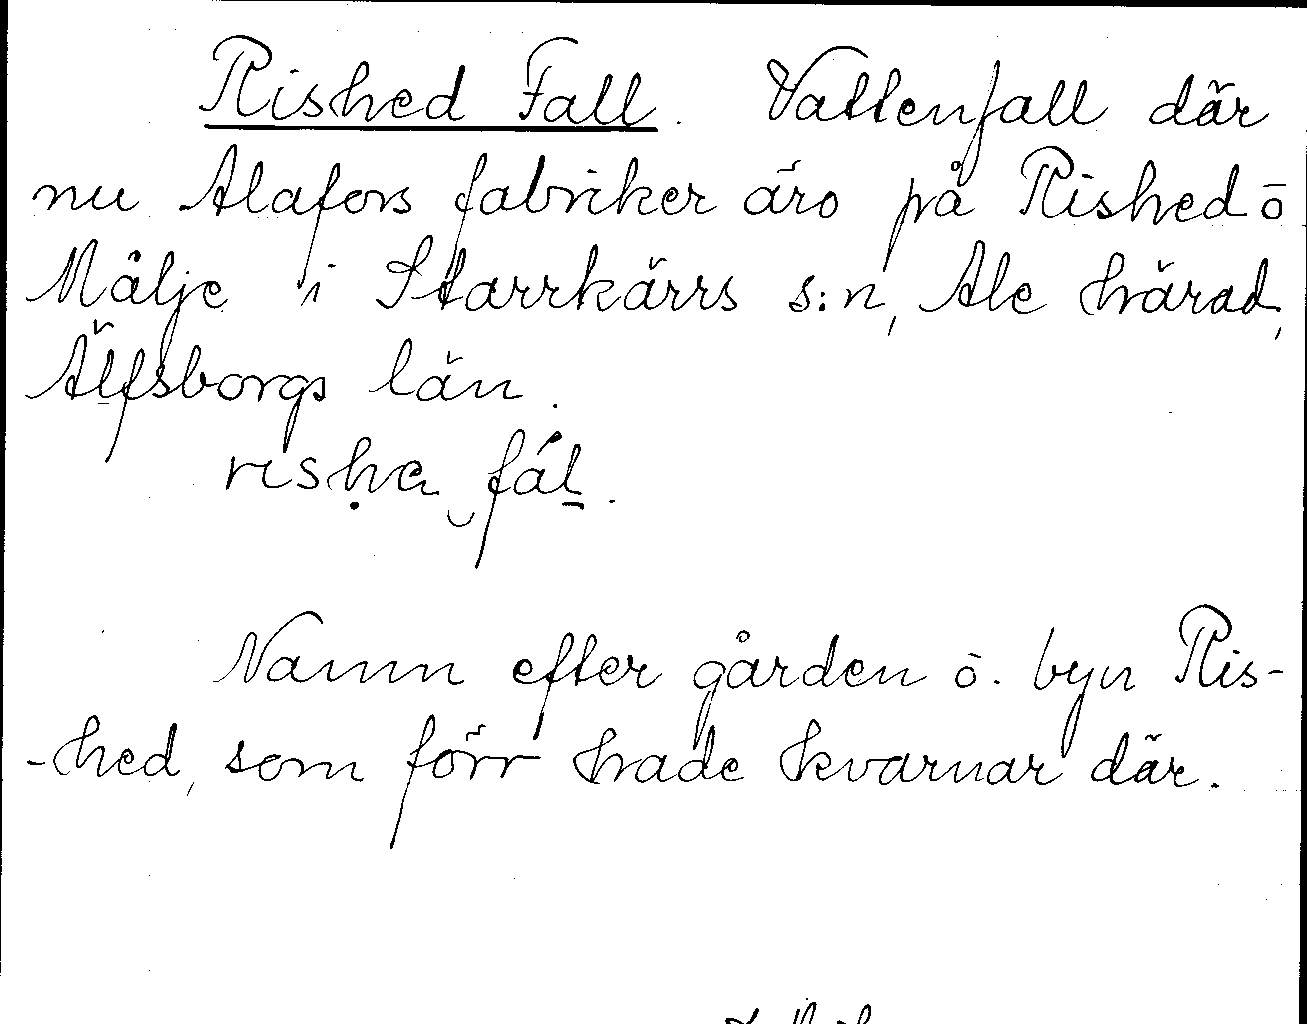 Rished Fall. Vattenfall där
nu Alafors fabriker äro på Rished ō
Mälje i Starrkärrs s:n, Ale härad,
Älfsborgs län.
risḥa‿fáḻ.
Namn efter gården ō. byn Ris-
-hed, som förr hade kvarnar där.